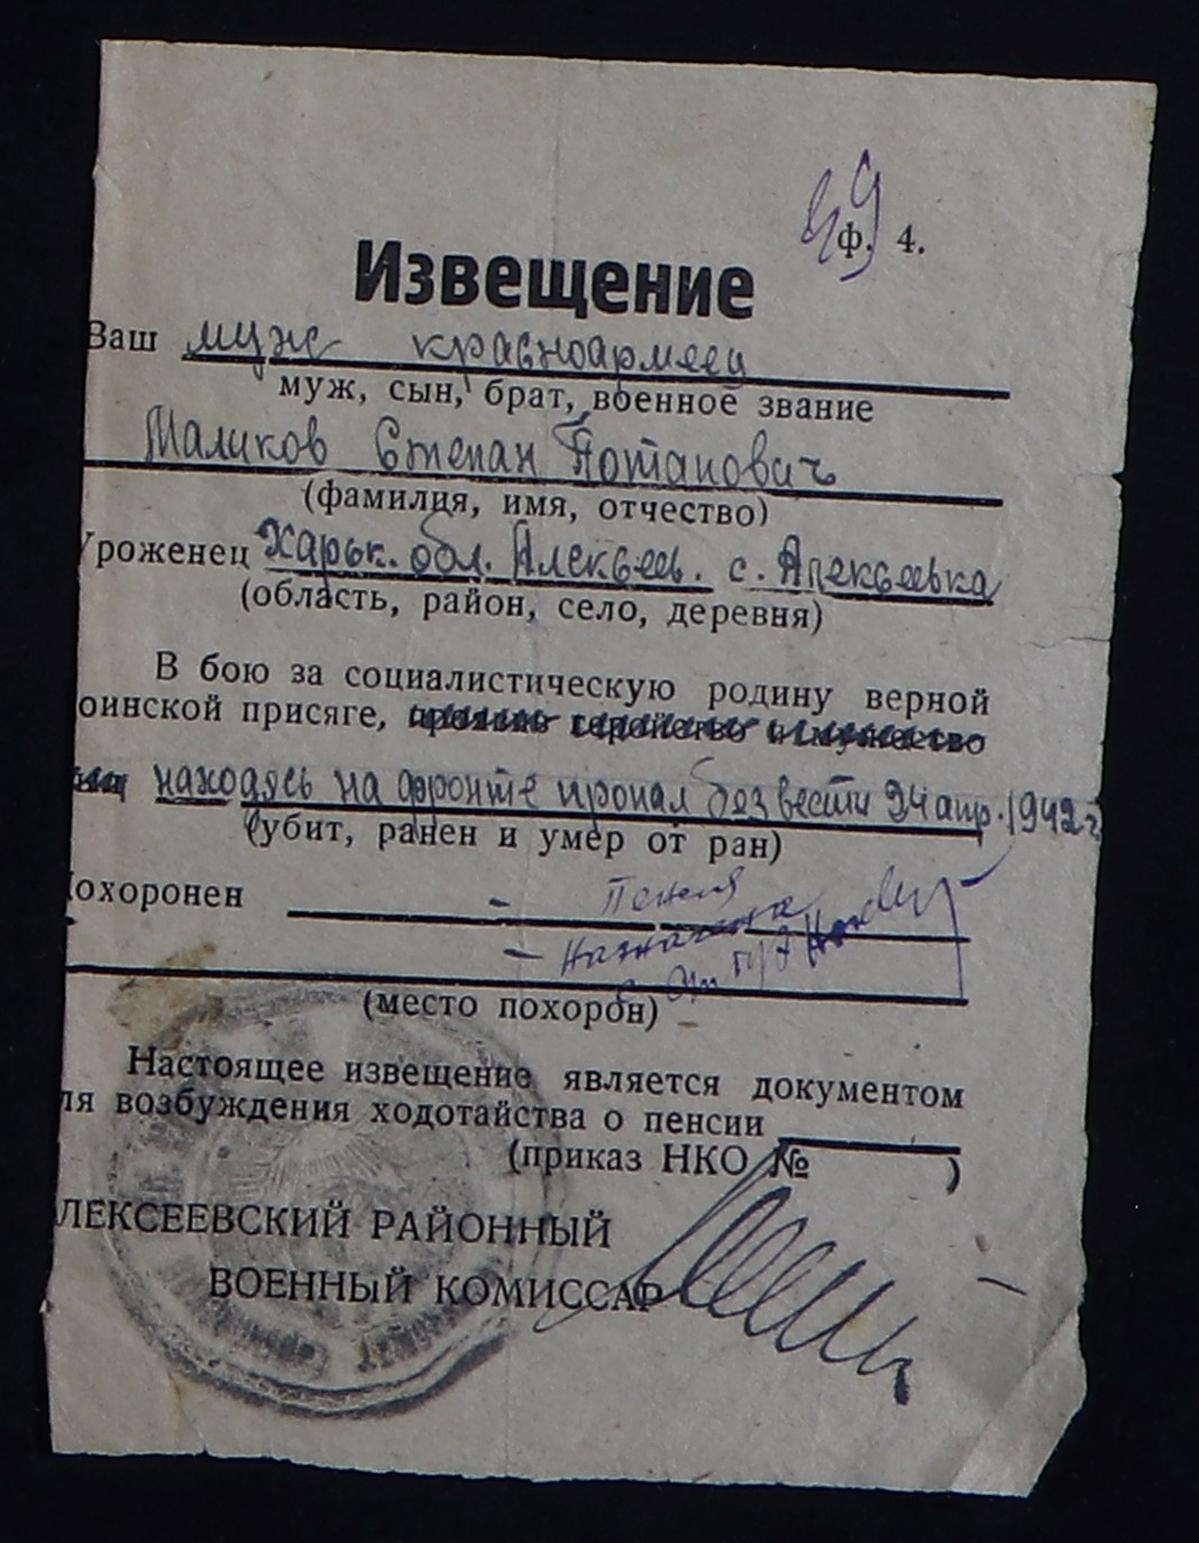 ф. 4.
Извещение
Ваш муж красноармеец
муж, сын, брат, военное звание
Маликов Степан Потапович
(фамилия, имя, отчество)
Уроженец Харьк. обл. Алексеев. с. Алексеевка
(область, район, село, деревня)
В бою за социалистическую родину верной
оинской присяге, проявив геройство и мужество
находясь на фронте пропал без вести 24 апр. 1942 г
(убит, ранен и умер от ран)
Похоронен
Пенсия
назначена
(место похорон)
Настоящее извещение является документом
ля возбуждения ходотайства о пенсии
(приказ НКО № )
ЛЕКСЕЕВСКИЙ РАЙОННЫЙ
ВОЕННЫЙ КОМИССАР